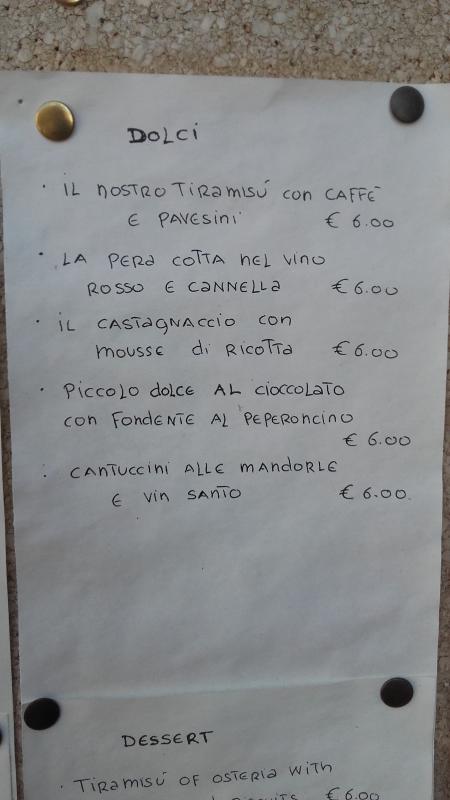 DOLCI
· IL NOSTRO TIRAMISÚ CON CAFFÈ
E PAVESINI € 6.00
· LA PERA COTTA NEL VINO
ROSSO E CANNELLA € 6.00
· IL CASTAGNACCIO CON
MOUSSE di RICOTTA € 6.00
· PICCOLO DOLCE AL CIOCCOLATO
CON FONDENTE AL PEPERONCINO
€ 6.00
· CANTUCCINI ALLE MANDORLE
E VIN SANTO € 6.00.
DESSERT
· TIRAMISÚ OF OSTERIA WITH
€ 6.00